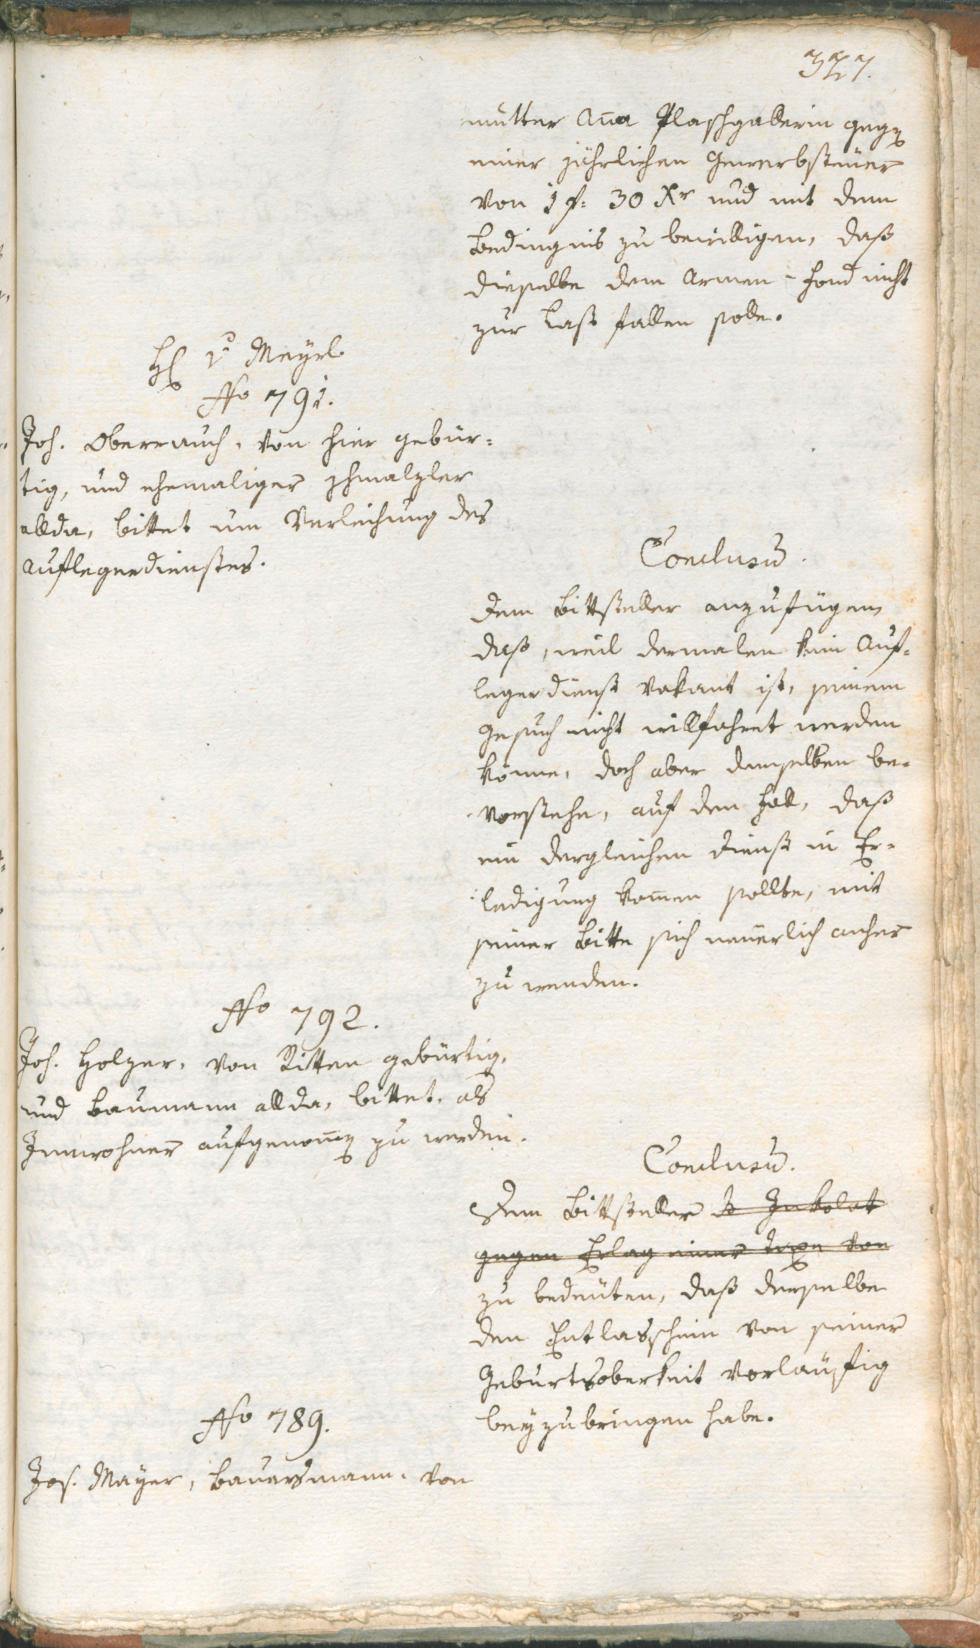 377.
mutter Aña Plaschgallerin gegen
einer jährlichen Gewerbsteuer
von 1 f: 30 Xr und mit dem
Bedingnis zu bewilligen, daß
dieselbe dem Armen-Fond nicht
zur Last fallen solle.
H v Meyrl
No 791.
Joh. Oberrauch, von hier gebür=
tig, und ehemaliger schmalzler
allda, bittet um Verleihung des
Auflegerdienstes.
Conclusũ.
Dem Bittsteller anzufügen,
daß, weil dermalen kein Auf=
legerdienst vakant ist, seinem
Gesuch nicht willfahret werden
könne, doch aber demselben be=
vorstehe, auf den Fall, daß
ein dergleichen Dienst in Er=
ledigung kom̃en sollte, mit
seiner Bitte sich neuerlich anher
zu wenden.
No 792.
Joh. Holzer, von Ritten gebürtig,
und Baumann allda, bittet, als
Innwohner aufgenom̃en zu werden.
Conclusũ.
Dem Bittsteller Inkolat
gegen Erlag einer Taxe von
zu bedeuten, daß derselbe
den Entlasschein von seiner
Geburtsoberkeit vorläufig
beyzubringen habe.
No 789.
Jos. Mayer, Bauersmann, von